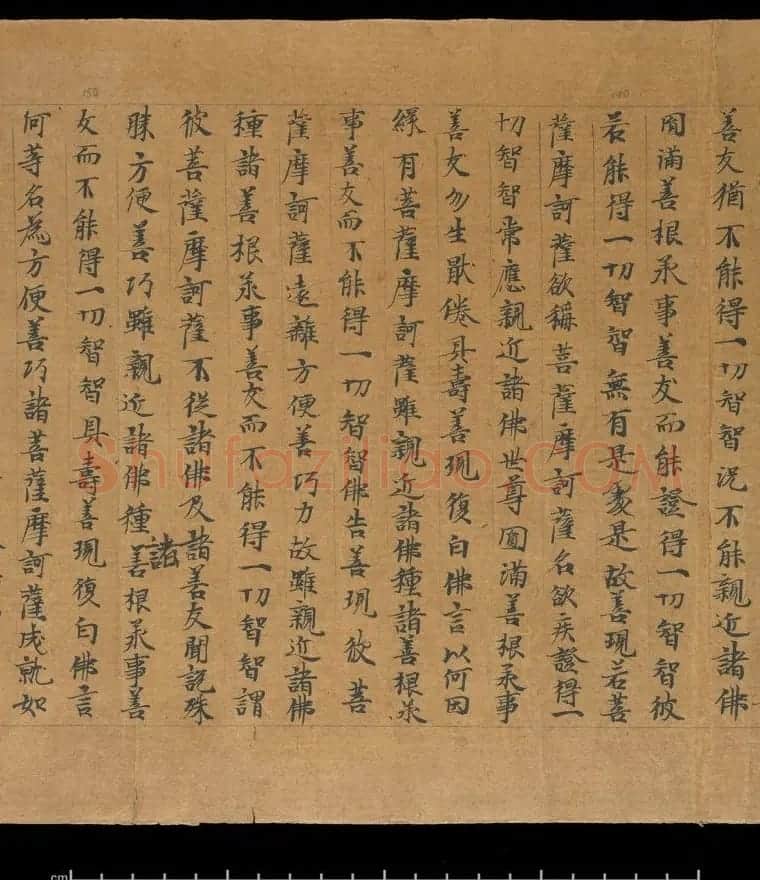 善友猶不能得一切智智況不能親近諸佛
圓滿善根承事善友而能證得一切智智彼
若能得一切智智無有是處是故善現若菩
薩摩訶薩欲稱菩薩摩訶薩名欲疾證得一
切智智常應親近諸佛世尊圓滿善根承事
善友勿生猒倦具壽善現復白佛言以何因
緣有菩薩摩訶薩雖親近諸佛種諸善根承
事善友而不能得一切智智佛告善現彼菩
薩摩訶薩遠離方便善巧力故雖親近諸佛
種諸善根承事善友而不能得一切智智謂
彼菩薩摩訶薩不從諸佛及諸善友聞說殊
勝方便善巧雖親近諸佛種諸善根承事善
友而不能得一切智智具壽善現復白佛言
何等名為方便善巧諸菩薩摩訶薩成就如
150
140
Shufaziliao.COM
cm